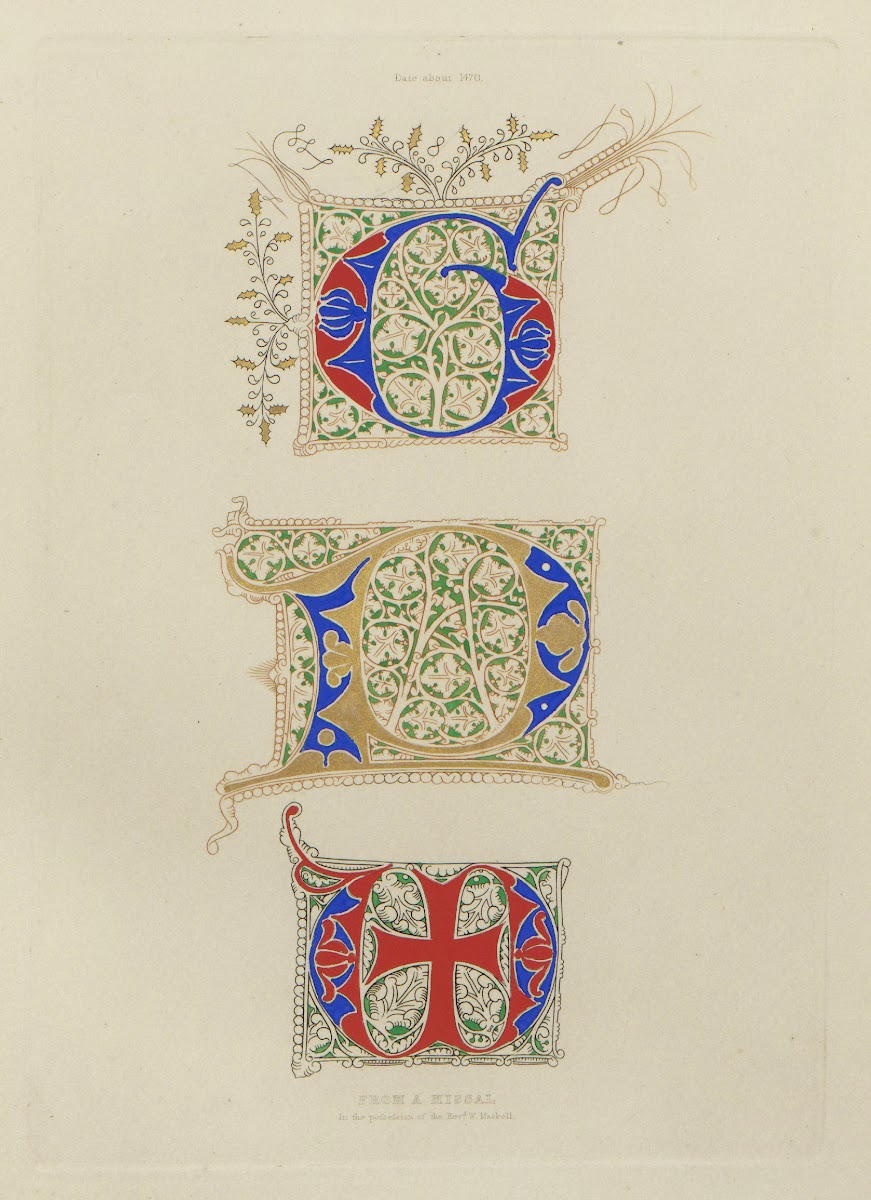 Date about 1470.
G
FROM A MISSAL
In the poſseſsion of the Revd. W. Maskell.